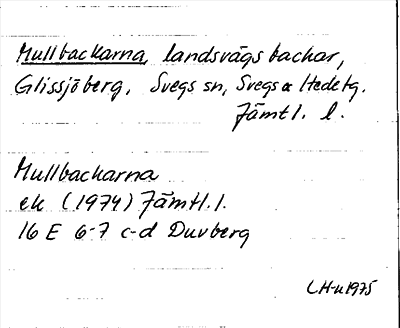 Mullbackarna, landsvägsbackar,
Glissjöberg, Svegs sn, Svegs o Hede tg.
Jämtl. l.
Mullbackarna
ek (1974) Jämtl. l.
16 E 6-7 c-d Duvberg
LH-u 1975